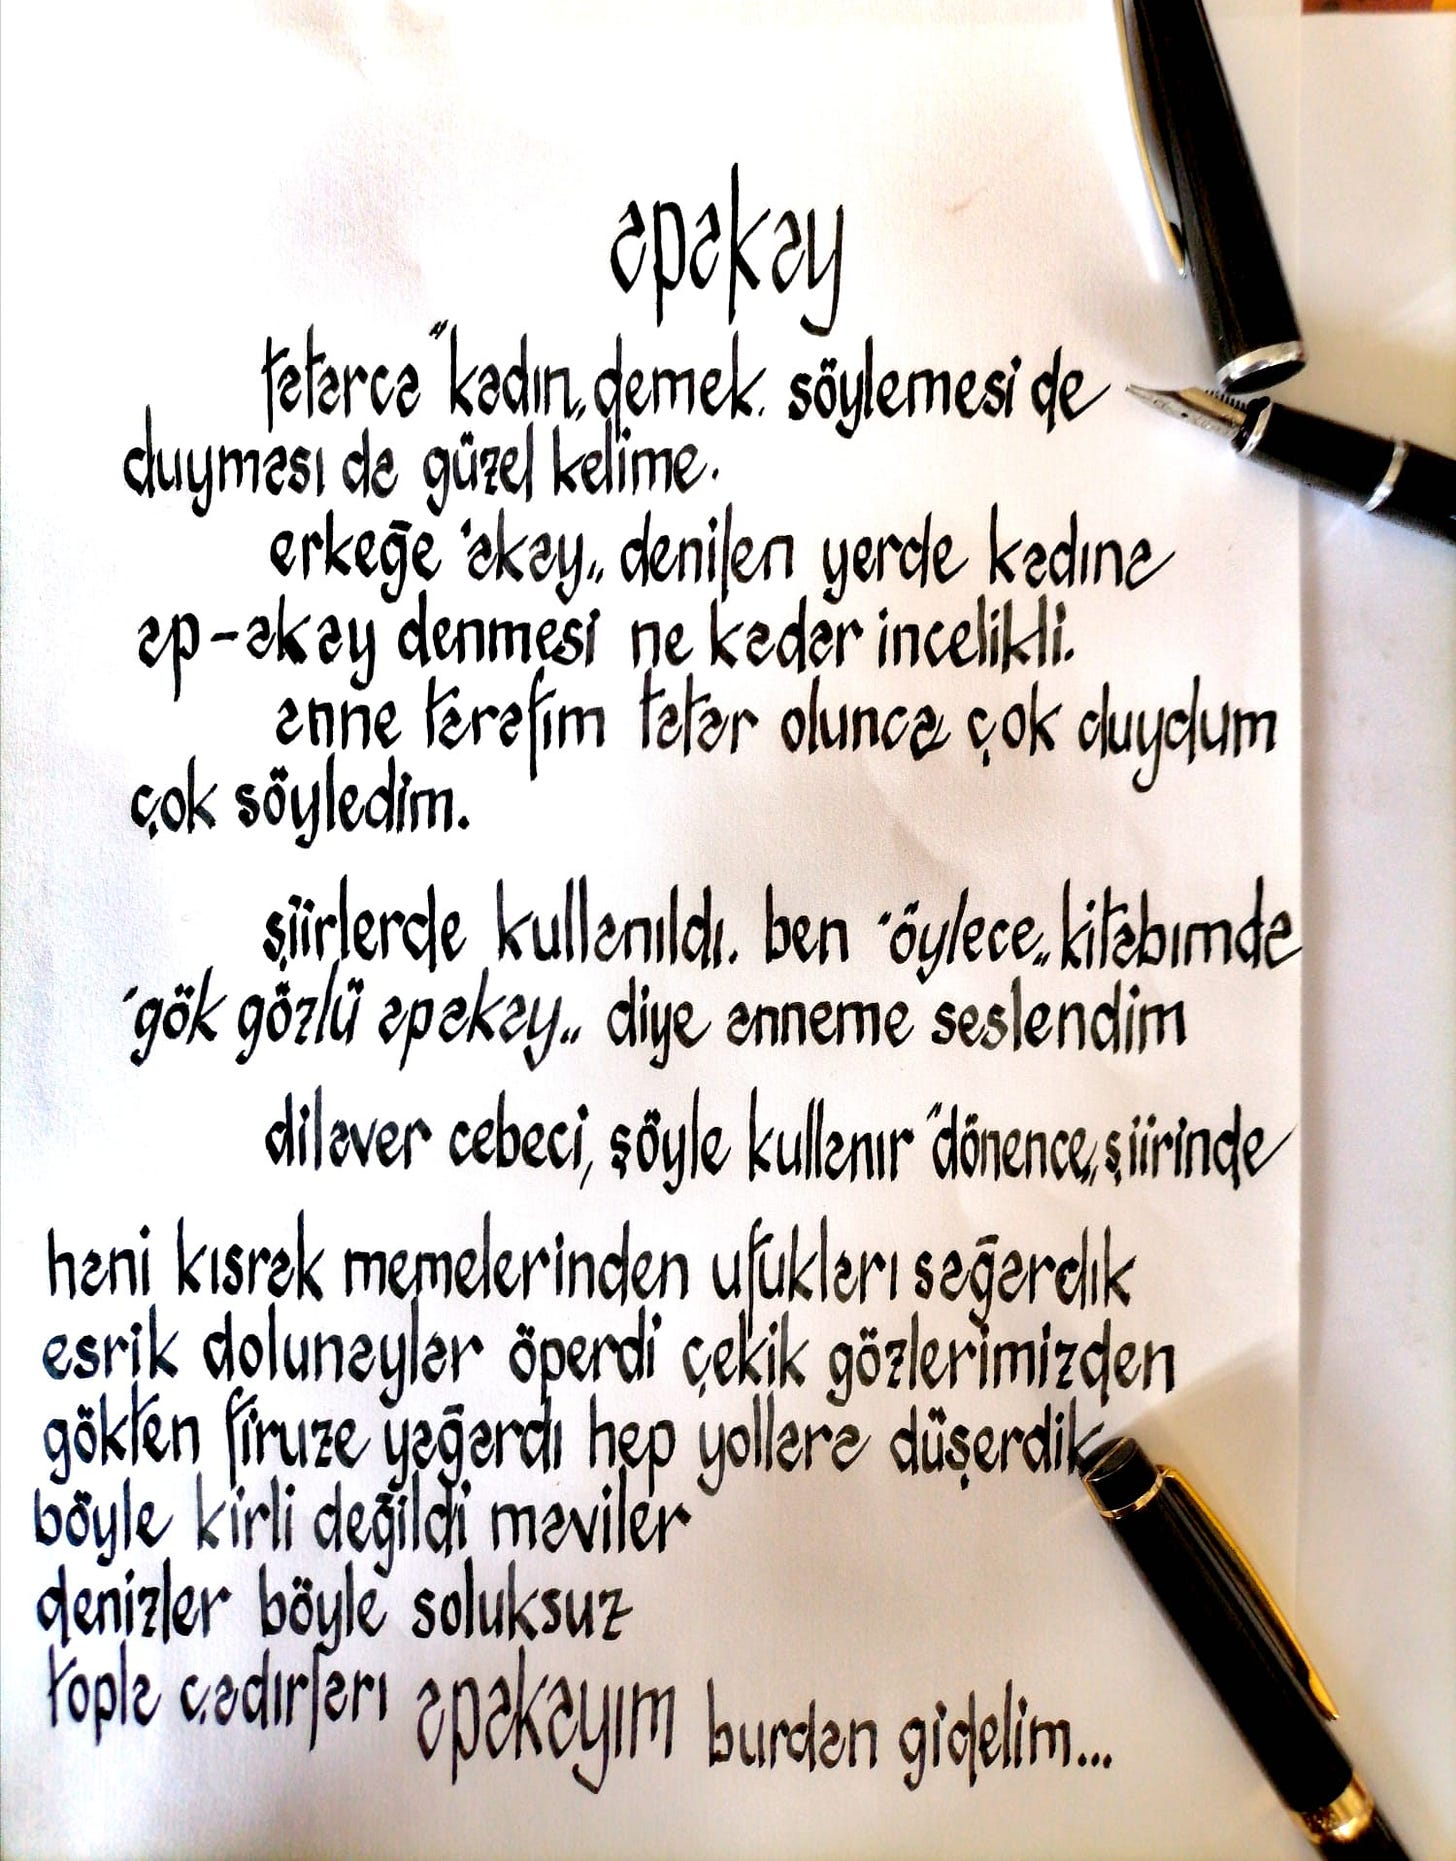 apakay
tatarca "kadın„ demek. söylemesi de
duyması da güzel kelime.
erkeğe "akay„ denilen yerde kadına
ap-akay denmesi ne kadar incelikli.
anne tarafım tatar olunca çok duydum
çok söyledim.
şiirlerde kullanıldı. ben "öylece„ kitabımda
"gök gözlü apakay„ diye anneme seslendim
dilaver cebeci, şöyle kullanır "dönence„ şiirinde
hani kısrak memelerinden ufukları sağardık
esrik dolunaylar öperdi çekik gözlerimizden
gökten firuze yağardı hep yollara düşerdik
böyle kirli değildi maviler
denizler böyle soluksuz
topla çadırları apakayım burdan gidelim...